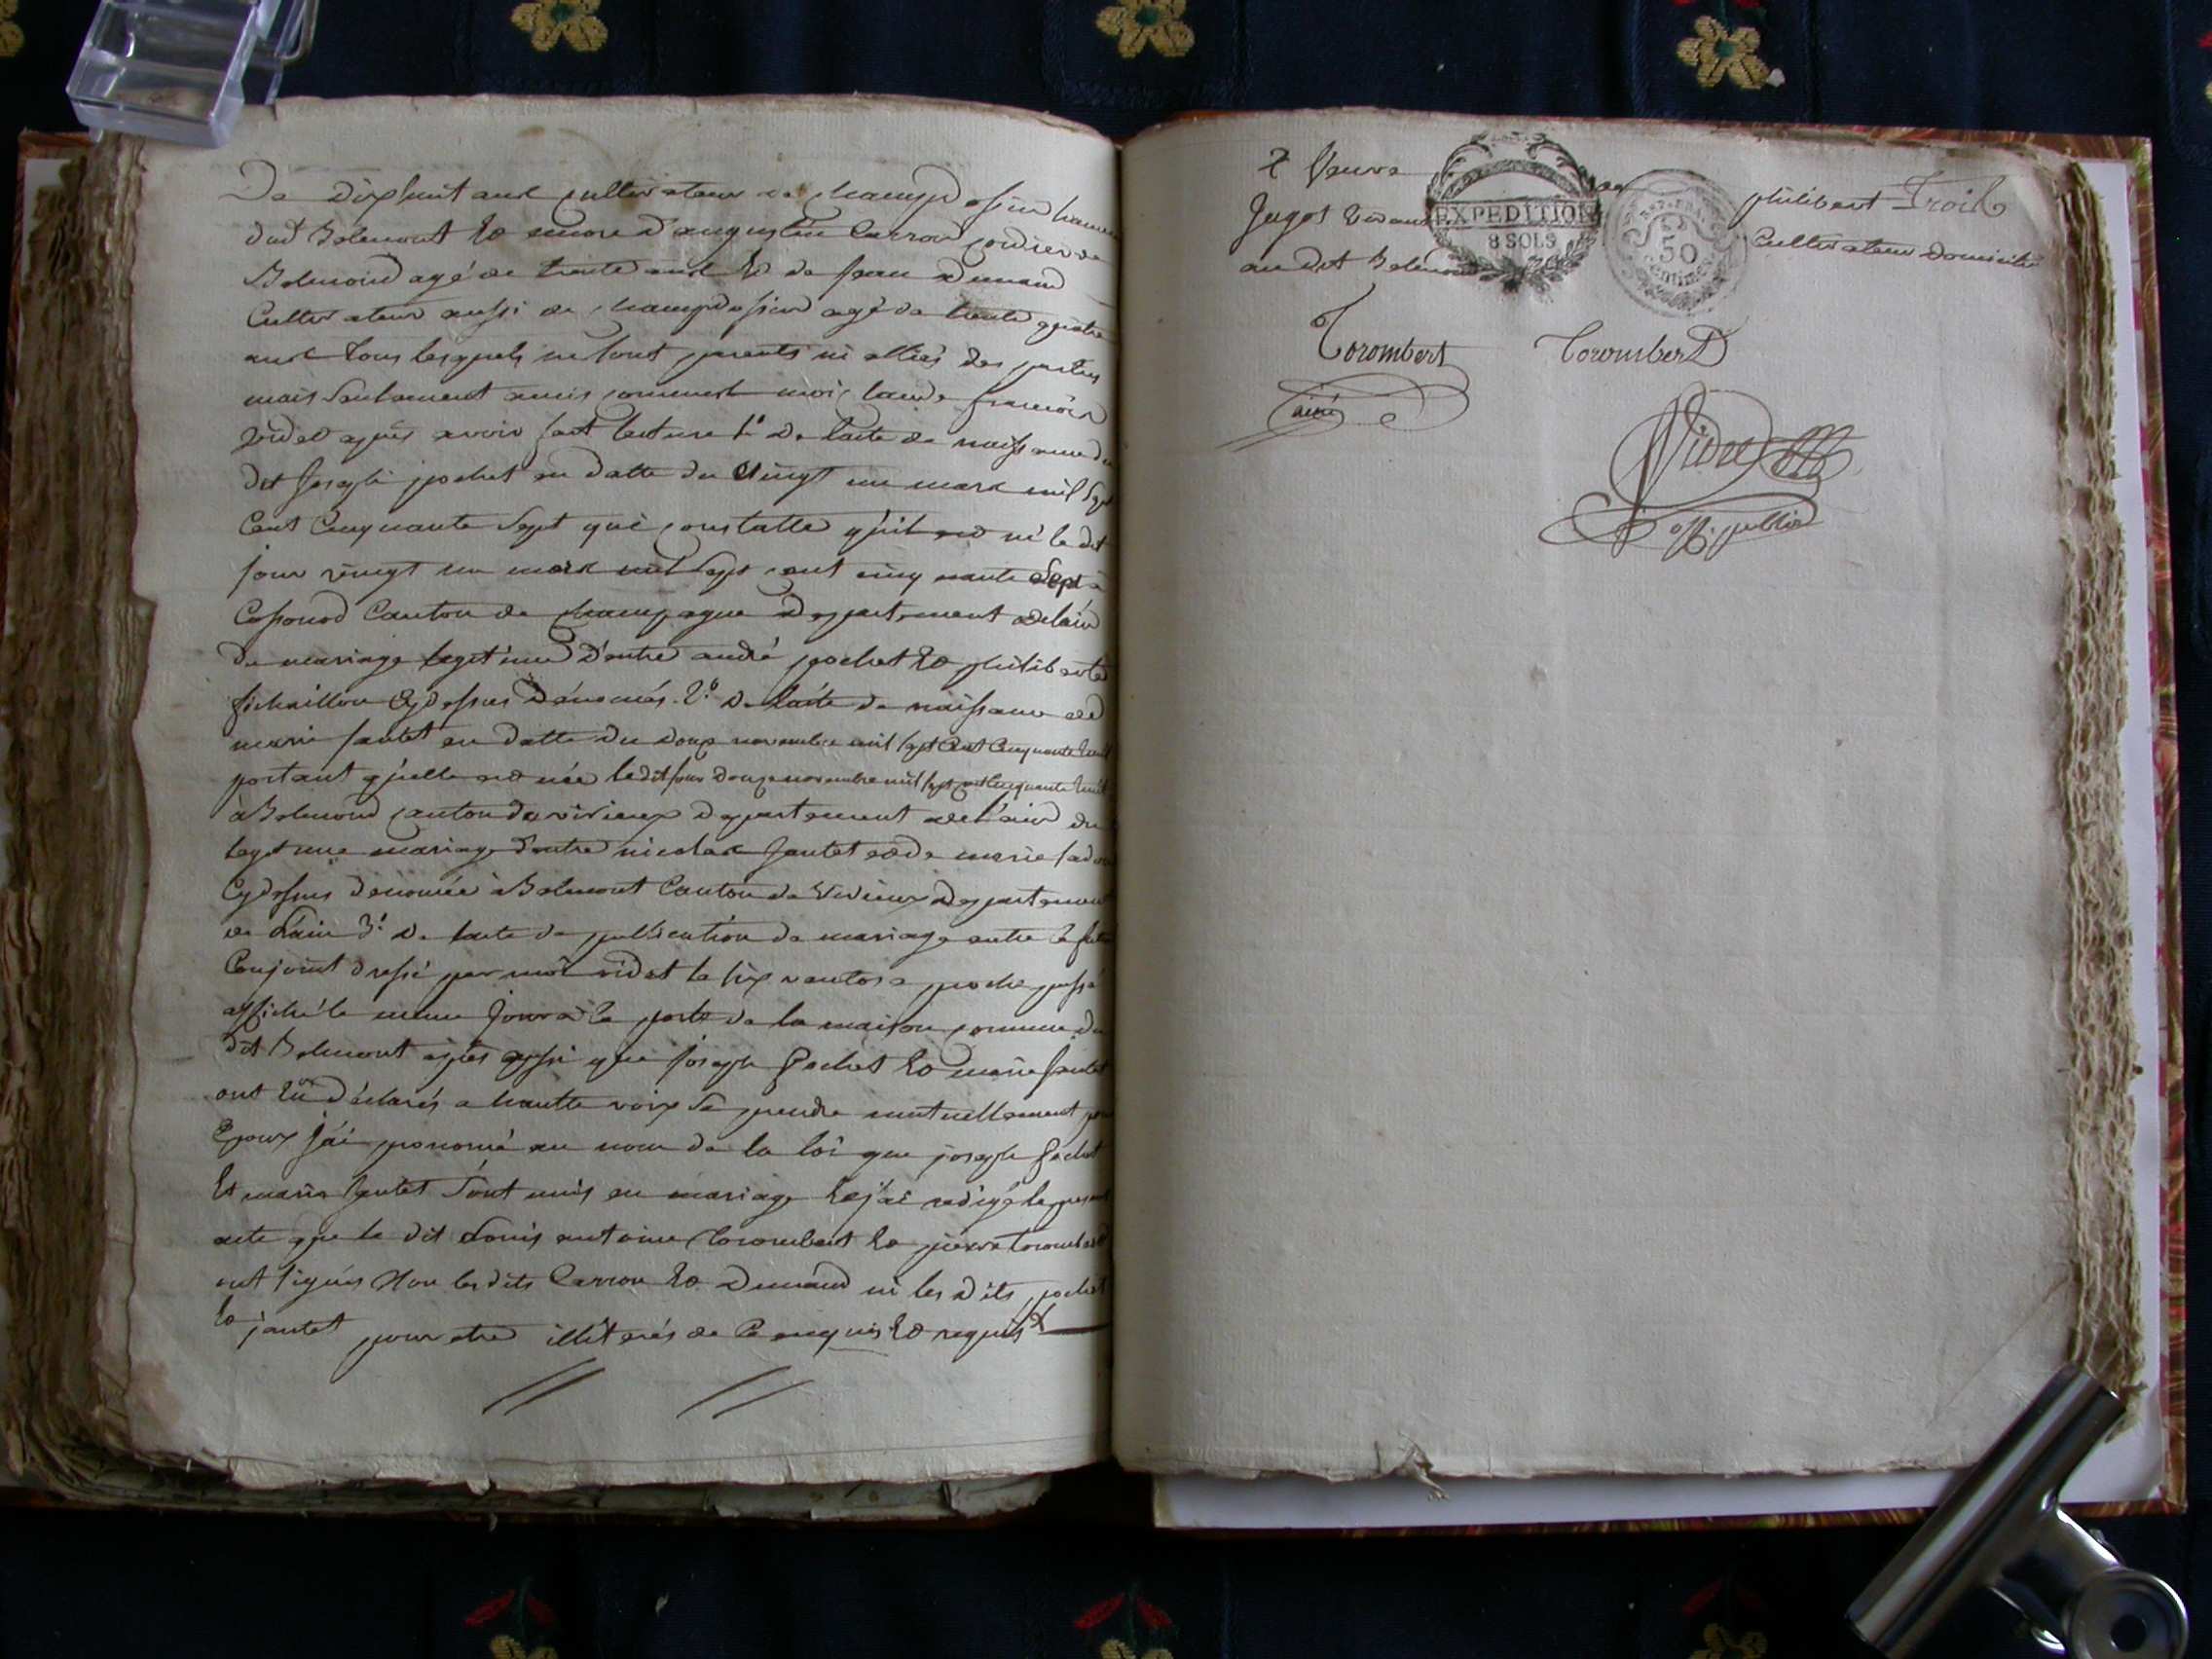 De dixhuit ans cultivateur de champdossin hameau
dud Belmont et encore d'augustin Carron cordier de
Belmond agé de trente ans et de jean dumand
Cultivateur aussi de champdossin agé de trente quatre
ans tous lesquels ne sont parents ni alliés des parties
mais seulement amis comme moi claude françois
videt après avoir fait lecture 1° de lacte de naissance du
dit joseph pochet en datte du vingt un mars mil sept
Cent Cinquante sept qui constatte quil est né le dit
jour vingt un mars mil sept cent cinquante sept à
Canton de champagne departement delain
du mariage legitime d'entre andré pochet et philiberte
fichaillon cydessus dénomés. 2° de lacte de naissance de
marie jantet en datte du douze novembre mil sept Cent Cinquante huit
portant quelle est née ledit jour douze novembre mil sept cent cinquante huit
à Belmond canton de virieux departement de l'ain du
legitime mariage d'entre nicolas jantet et de marie
Cydessus denomée à Belmont Canton de Virieux departement
de L'ain 3° de lacte de publication de mariage entre le futur
Conjoint dressé par moi videt le six ventose proche passé
affiché le meme jour à la porte de la maison commune du
dit Belmont après aussi que joseph pochet et marie jantet
ont eu déclarés a hautte voix se prendre mutuellement pour
Epoux j'ai prononcé au nom de la loi que joseph pochet
et marie jantet sont unis en mariage et j'ai redigé le present
acte que le dit Louis antoine Torombert et pierre torombert
ont signés Non lesdits Carron et dumand ni les dits pochet
et jantet pour etre illiterés de ce enquis et requis
veuve de philibert Troil
Jugot vivant Cultivateur domicilié
au dit Belmont
EXPEDITION
8 SOLS
REP. FRA.
50
centimes
Torombert Torombert
ainé
Videt
off. public